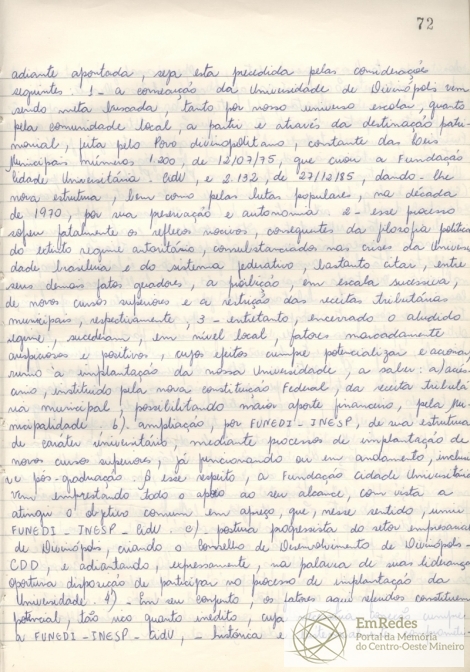 72
adiante apontada, seja esta precedida pelas considerações
seguintes: 1- a consecução da Universidade de Divinópolis vem
sendo meta buscada, tanto por nosso universo escolar, quanto
pela comunidade local, a partir e através da destinação patri-
monial, feita pelo Povo divinopolitano, constante das Leis
Municipais números 1.200, de 12/07/75, que criou a Fundação
Cidade Universitária CidU, e 2.132, de 27/12/85, dando-lhe
nova estrutura, bem como pelas lutas populares, na década
de 1970, por sua preservação e autonomia 2- esse processo
sofreu fatalmente os reflexos nocivos, conseguentes da filosofia política
do extinto regime autoritário, consubstanciados nas crises da Univer-
dade brasileira e do sistema federativo, bastanto citar, entre
seus demais fatos geradores, a proibição, em escala sucessiva,
de novos cursos superiores e a restrição das receitas tributárias
municipais, respectivamente, 3- entretanto, encerrado o aludido
regime, sucederam, em nível local, fatores marcadamente
auspiciosos e positivos, cujos efeitos cumpre potencializar e acionar
rumo à implantação da nossa Universidade, a saber: a) acrés-
cimo, instituído pela nova constituição Federal, da receita tributá-
ria municipal, possibilitando maior aporte financeiro, pela Mu-
nicipalidade. b) ampliação, por FUNEDI-INESP, de sua estrutura
de caráter universitário, mediante processos de implantação de
novos cursos superiores, já funcionando ou em andamento, inclusi-
ve pós-graduação. A esse respeito, a Fundação Cidade Universitária
vem emprestando todo o apoio ao seu alcance, com vista a
atingir o objetivo comum em apreço, que, nesse sentido, uniu
FUNEDI-INESP-CidU. c) postura progressista do setor empresarial
de Divinópolis, criando o Conselho de Desenvolvimento de Divinópolis-
CDD, e adiantando, expressamente, na palavra de suas lideranças
oportuna disposição de participar no processo de implantação da
Universidade. 4)- Em seu conjunto, os fatores aqui referidos constituem
potencial, tão rico quanto inédito, cuja
a FUNEDI-INESP-CidU, - histórica e
EmRedes
Portal da Memória
do Centro-Oeste Mineiro